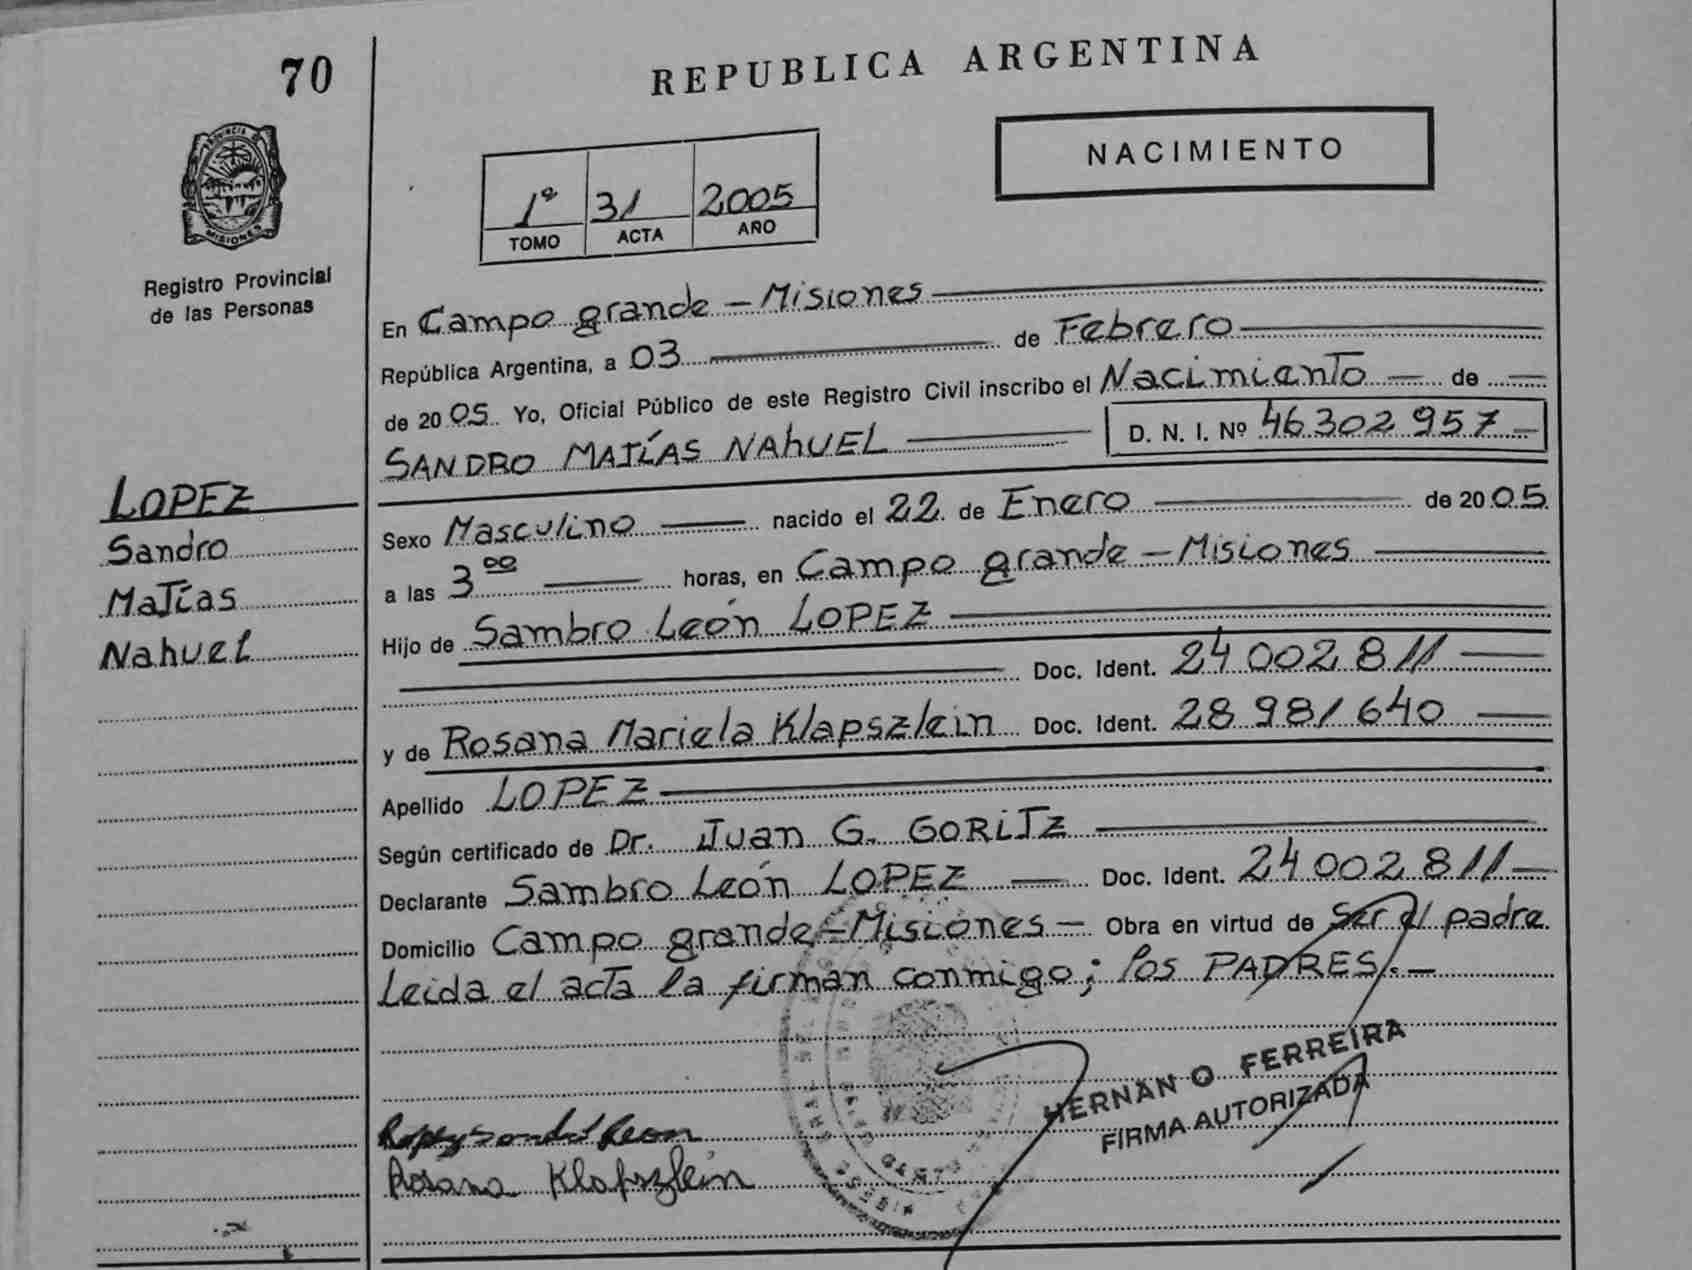 70
REPUBLICA ARGENTINA
NACIMIENTO
1º 31 2005
TOMO ACTA AÑO
PROVINCIA D
MISIONES
Registro Provincial
de las Personas
En Campo grande - Misiones
República Argentina, a 03 de Febrero
de 2005 Yo, Oficial Público de este Registro Civil inscribo el Nacimiento de
SANDRO MATÍAS NAhUEL D. N. I. Nº 46302957
LOPEZ
Sandro
Matías
Nahuel
Sexo Masculino nacido el 22 de Enero de 2005
a las 3 00 horas, en Campo grande - Misiones
Hijo de Sambro León LOPEZ
Doc. Ident. 24 002 811
y de Rosana Mariela Klapszlein Doc. Ident. 28 981 640
Apellido LOPEZ
Según certificado de Dr. Juan G. GORITZ
Declarante Sambro León LOPEZ Doc. Ident. 24 002 811
Domicilio Campo grande - Misiones - Obra en virtud de Ser el padre
Leida el acta la firman conmigo; los PADRES. -
HERNAN O FERREIRA
FIRMA AUTORIZADA
Rosana Klapszlein